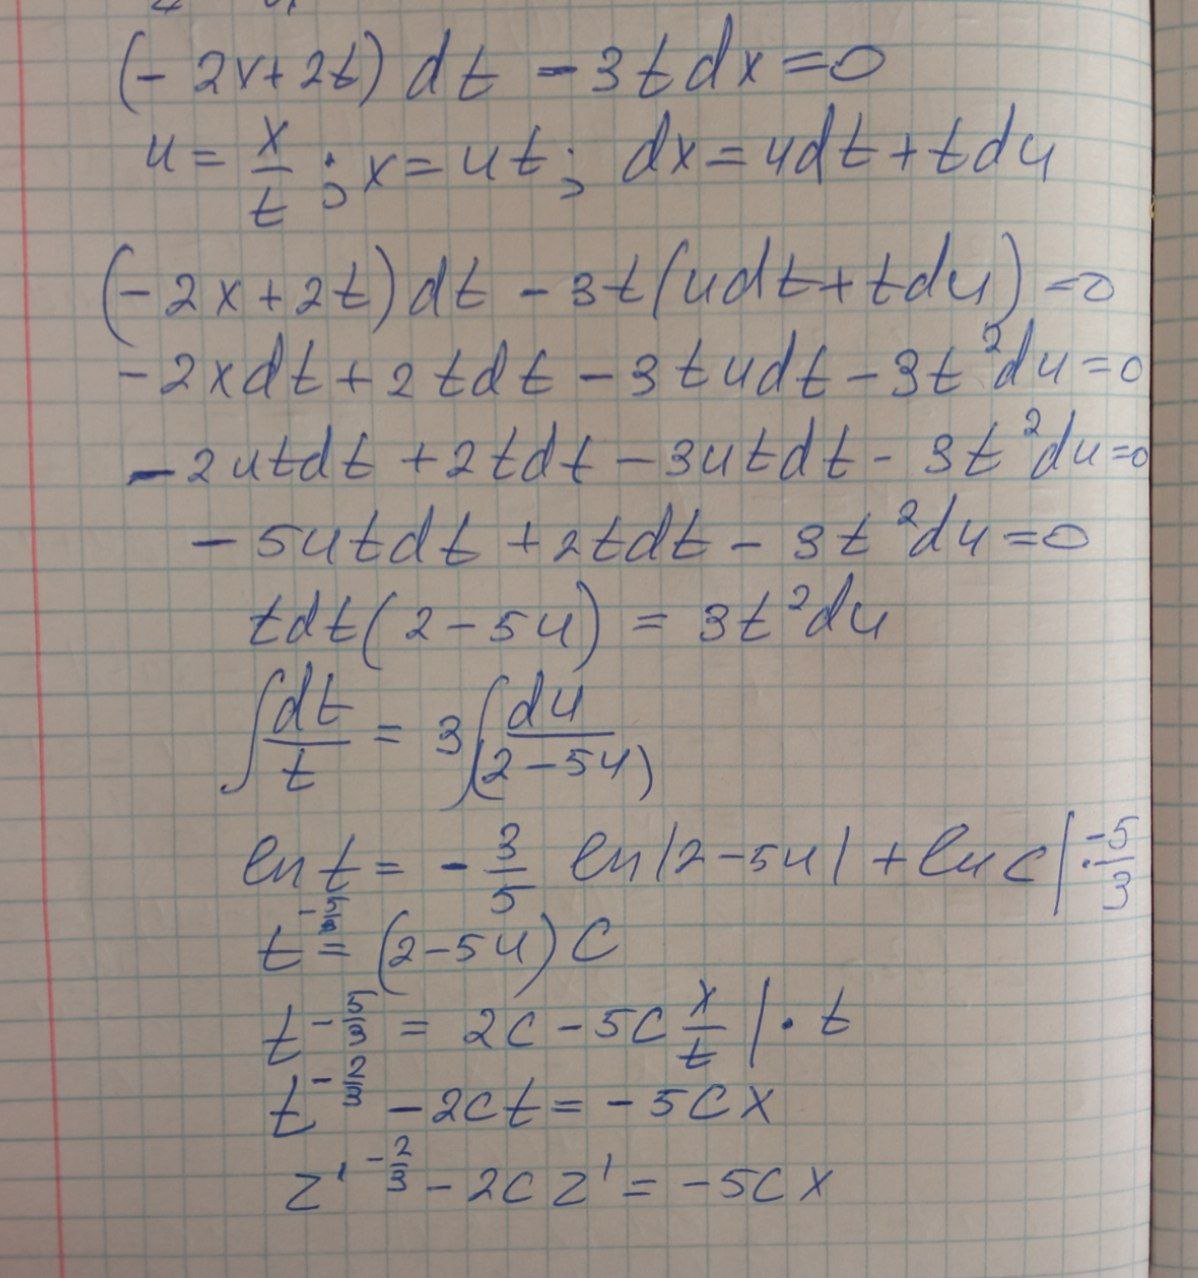 (- 2x + 2t) dt - 3t dx = 0
u = x/t ; x = ut ; dx = udt + tdu
(- 2x + 2t) dt - 3t (udt + tdu) = 0
- 2xdt + 2tdt - 3tudt - 3t²du = 0
- 2utdt + 2tdt - 3utdt - 3t²du = 0
- 5utdt + 2tdt - 3t²du = 0
tdt (2 - 5u) = 3t²du
∫ dt/t = 3 ∫ du/(2 - 5u)
ln t = - 3/5 ln |2 - 5u| + ln c | · -5/3
t^(-5/3) = (2 - 5u) C
t^(-5/3) = 2C - 5C x/t | · t
t^(-2/3) - 2Ct = - 5Cx
z'^(-2/3) - 2Cz' = - 5Cx